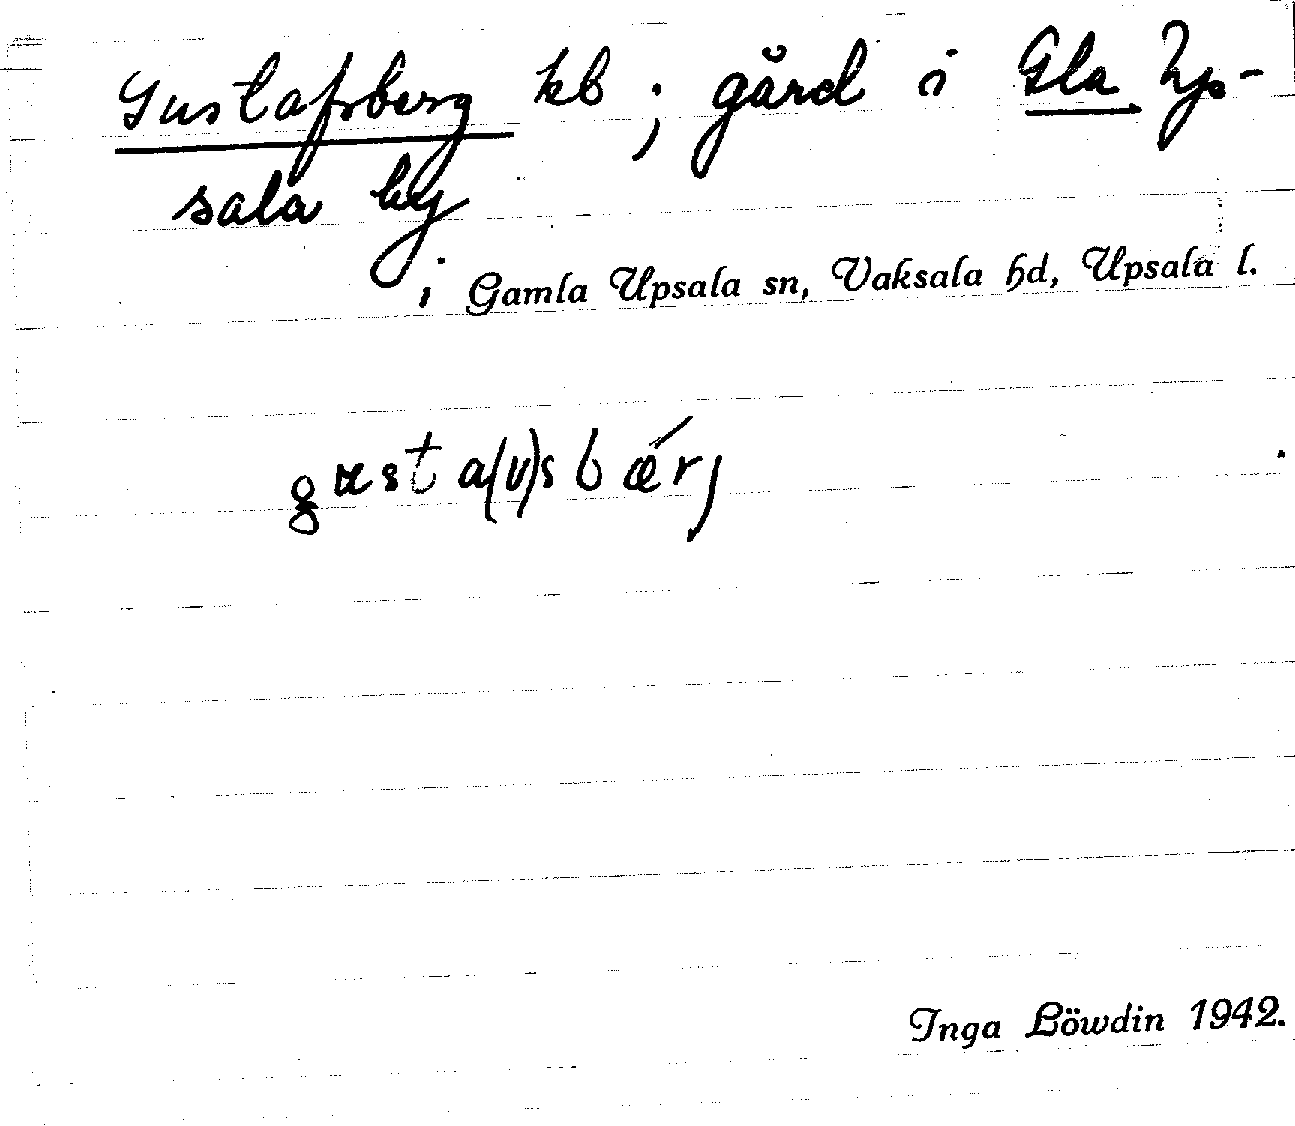 Gustafsberg kb; gård i Gla Up-
sala by
i Gamla Upsala sn, Vaksala hd, Upsala l.
gusta(v)sbǽrj
Inga Löwdin 1942.